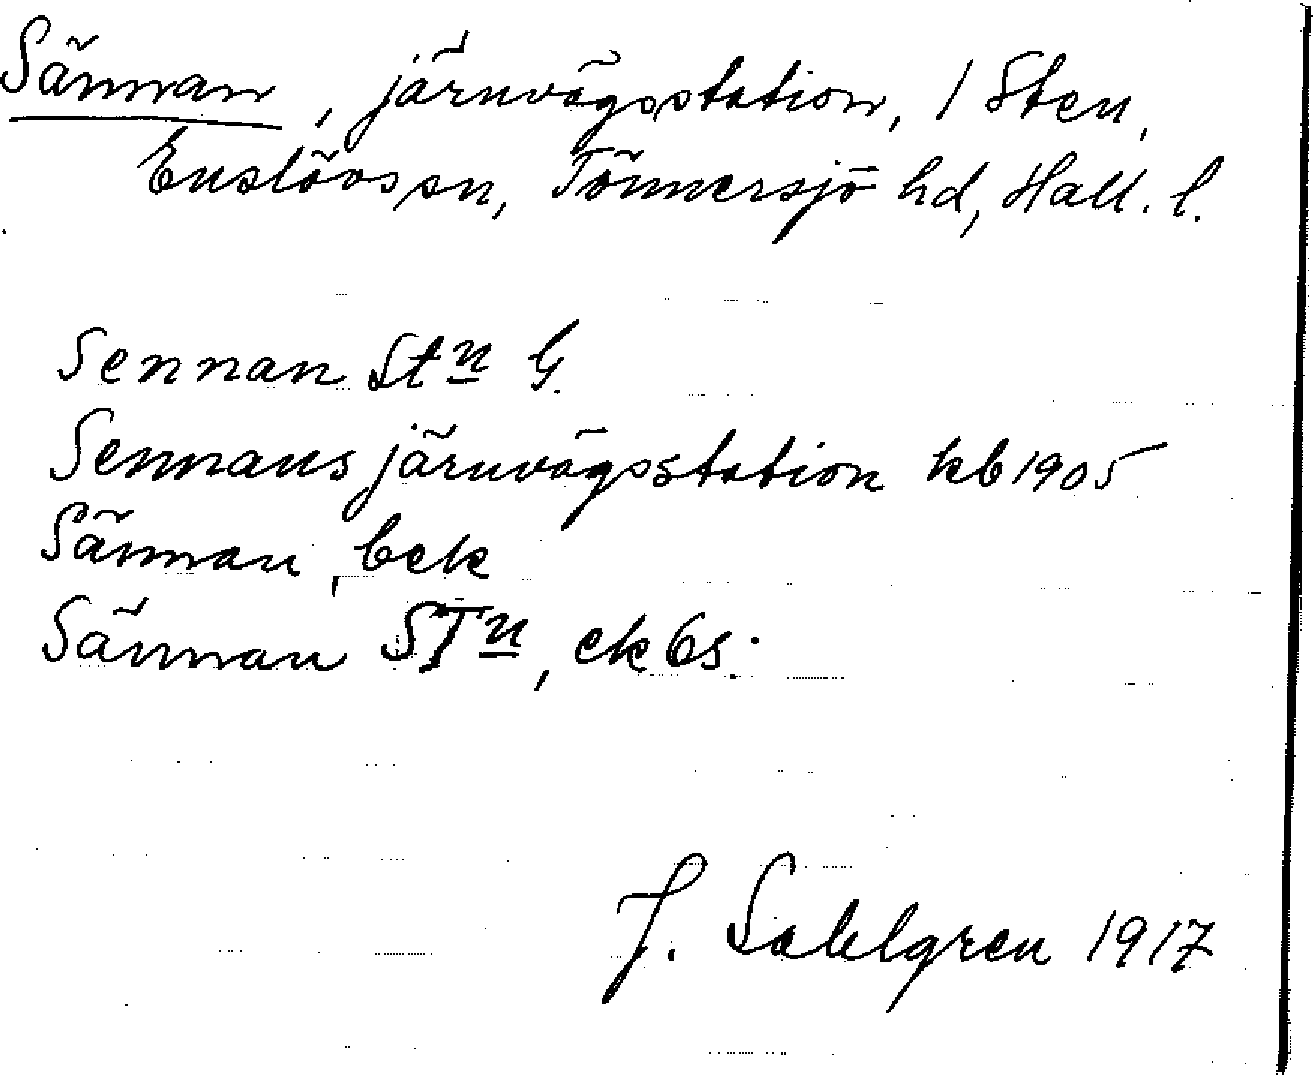 Sännan, järnvägsstation, 1 Sten,
Enslövs sn, Tönnersjö hd, Hall. l.
Sennan Stn G.
Sennans järnvägsstation kb 1905
Sännan, bek
Sännan STn, ekbs.
J. Sahlgren 1917